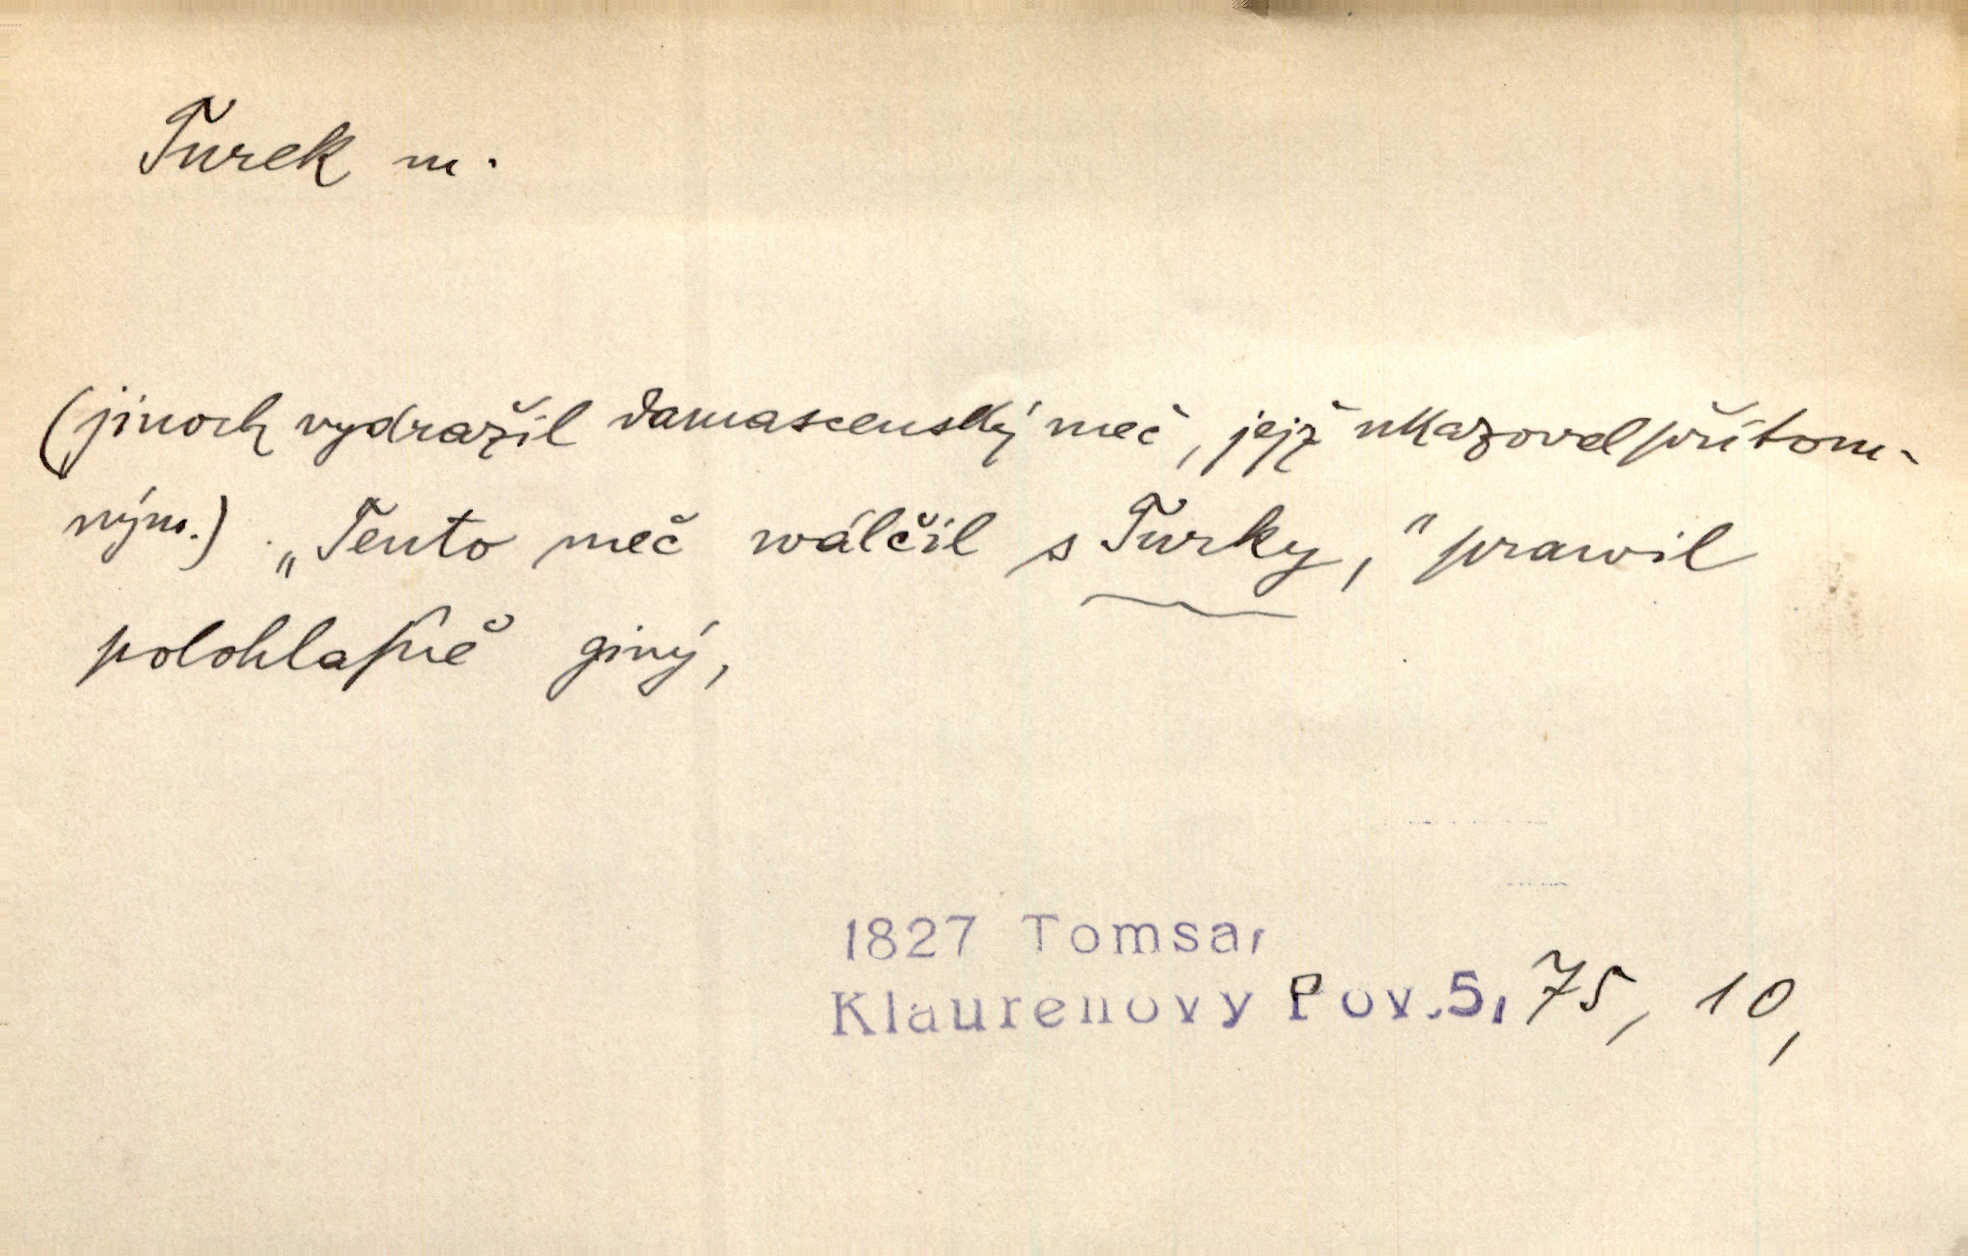 Turek m.
(jinoch vydražil damascenský meč, jejž ukazoval přítom-
ným.) „Tento meč wálčil s Turky,“ prawil
polohlaſně giný,
1827 Tomsa,
Klaurenovy Pov.5, 75, 10,